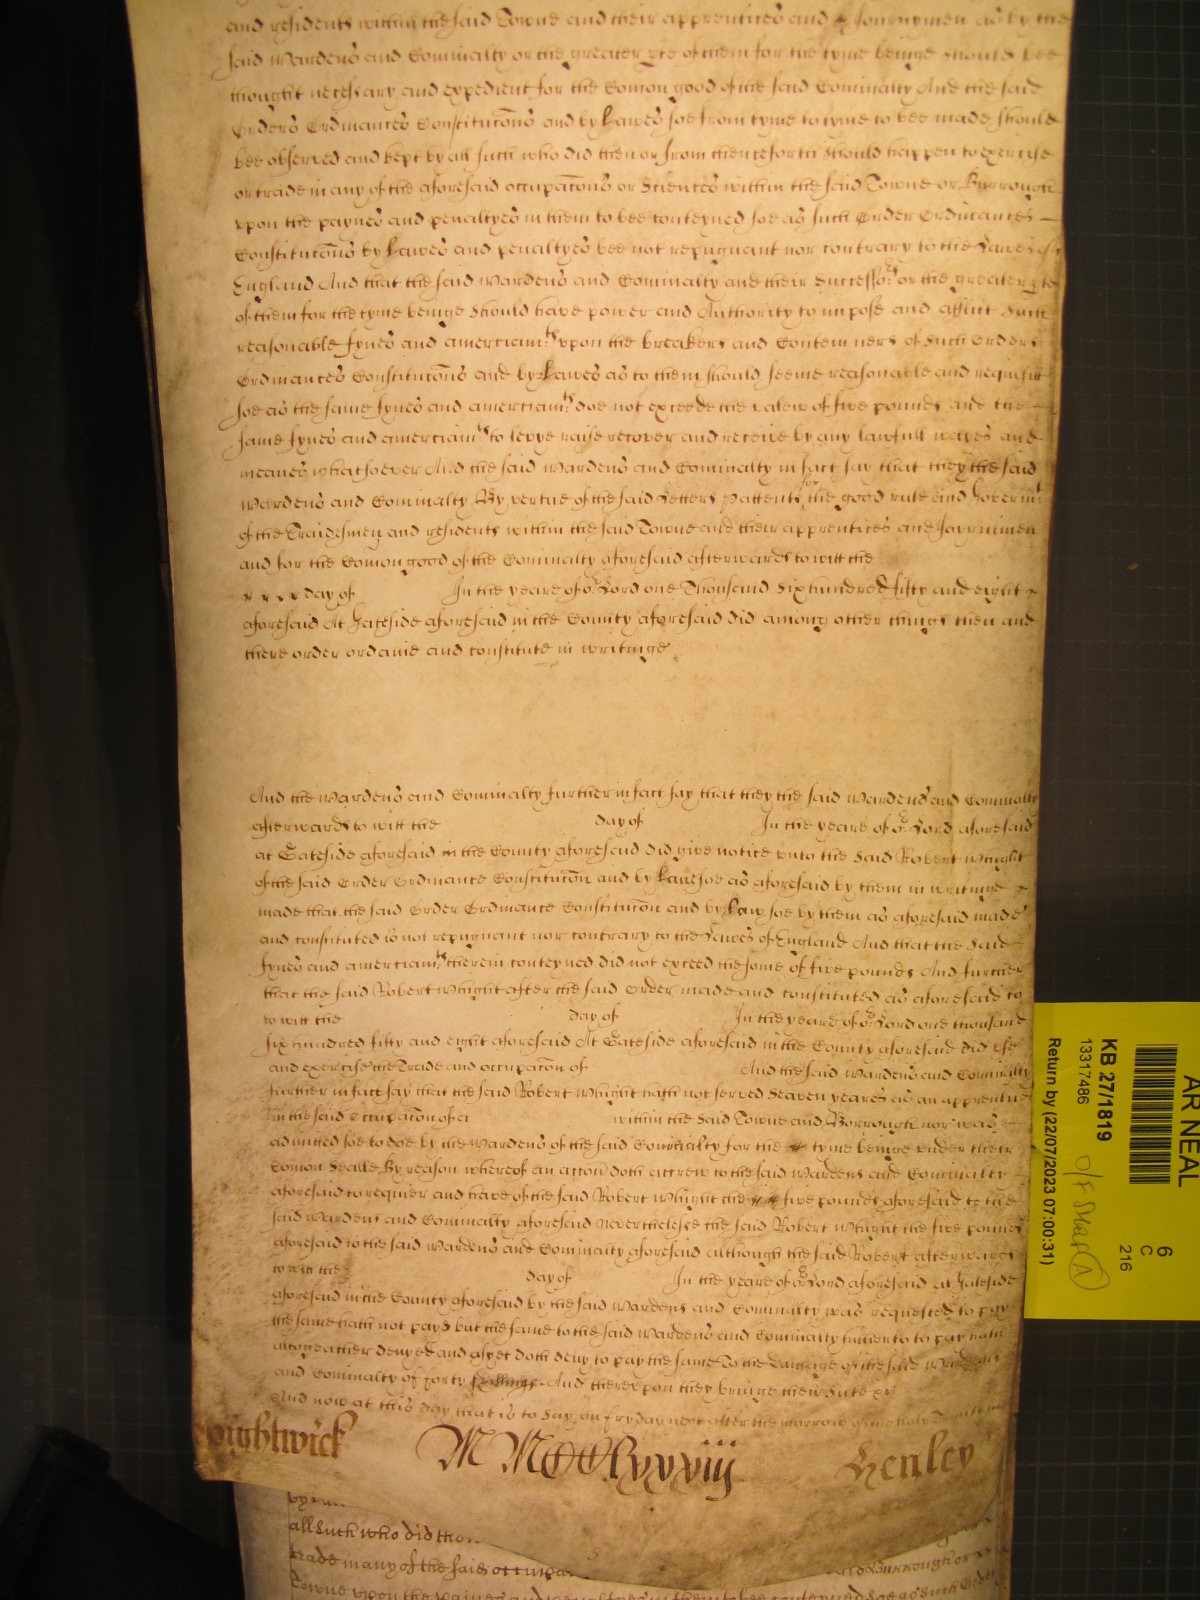 and residents within the said Towne and their apprentices and Journymen as by the
said Wardens and Cominalty or the greater pte of them for the tyme beinge should bee
thought necessary and expedient for the Comon good of the said Cominalty And the said
Orders Ordinances Constitucons and by Lawes soe from tyme to tyme to bee made should
bee observed and kept by all such who did then or from thenceforth should happen to exercise
or trade in any of the aforesaid occupacons or Sciences within the said Towne or Burrough
vpon the paynes and penaltyes in them to bee conteyned soe as such Order Ordinances
Constitucons by Lawes and penaltyes bee not repugnant nor contrary to the Lawes of
England And that the said Wardens and Cominalty and their Successors or the greater pte
of them for the tyme beinge should have power and Authority to impose and afflict such
reasonable fynes and amerciamts vpon the breakers and Contemners of such Orders
Ordinances Constitucons and by Lawes as to them should seeme reasonable and requisit
soe as the same fynes and amerciamts doe not exceede the valew of five pounds and the
same fynes and amerciamts to levye raise recover and receive by any lawfull wayes and
meanes whatsoever And the said Wardens and Cominalty in fact say that they the said
Wardens and Cominalty By vertue of the said Letters pattents for the good rule and Governmt
of the Traidesmen and residents within the said Towne and their apprentices and Joyrnimen
and for the Comon good of the Cominalty aforesaid afterwards to witt the
day of In the yeare of or Lord one Thousand Six hundred fifty and eight
aforesaid At Gateside aforesaid in the County aforesaid did among other things then and
there order ordaine and constitute in writinge
And the Wardens and Cominalty further in fact say that they the said Wardens and Cominalty
afterwards to witt the day of In the yeare of or Lord aforesaid
at Gateside aforesaid in the County aforesaid did give notice vnto the said Robert Whright
of the said Order Ordinance Constitucon and by Lawe soe as aforesaid by them in writinge
made that the said Order Ordinance Constitucon and by Law soe by them as aforesaid made
and constituted is not repugnant nor contrary to the Lawes of England And that the said
fynes and amerciamts therein conteyned did not exceed the some of five pounds And further
that the said Robert Whright after the said Order made and constituted as aforesaid to
to witt the day of In the yeare of or Lord one thousand
six hundred fifty and eight aforesaid At Gateside aforesaid in the County aforesaid did vse
and exercise the Trade and occupacon of And the said Wardens and Cominalty
further in fact say that the said Robert Whright hath not served Seaven yeares as an apprentice
in the said occupacon of a within the said Towne and Borrough nor was
admitted soe to doe by the Wardens of the said Cominalty for the tyme beinge vnder their
Comon Seale By reason whereof an accon doth accrew to the said Wardens and Cominalty
aforesaid to requier and have of the said Robert Whright the five pounds aforesaid to the
said Wardens and Cominalty aforesaid Neverthelesse the said Robert Whright the five pounds
aforesaid to the said Wardens and Cominalty aforesaid although the said Robert afterwards
to witt the day of In the yeare of or Lord aforesaid at Gateside
aforesaid in the County aforesaid by the said Wardens and Cominalty was requested to pay
the same hath not payd but the same to the said Wardens and Cominalty hitherto to pay hath
altogeather denyed and as yet doth deny to pay the same To the damage of the said Wardens
and Cominalty of forty shillings And therevpon they bringe their Sute &c
And now at this day that is to say on fryday next after the morrow of the holy Trinity
wightwick MMCClxxxiij Henley
all such who did then
trade in any of the said occupa Burrough or
Towne vpon the paines and
AR NEAL
6
C
216
KB 27/1819
13317486
Return by (22/07/2023 07:00:31)